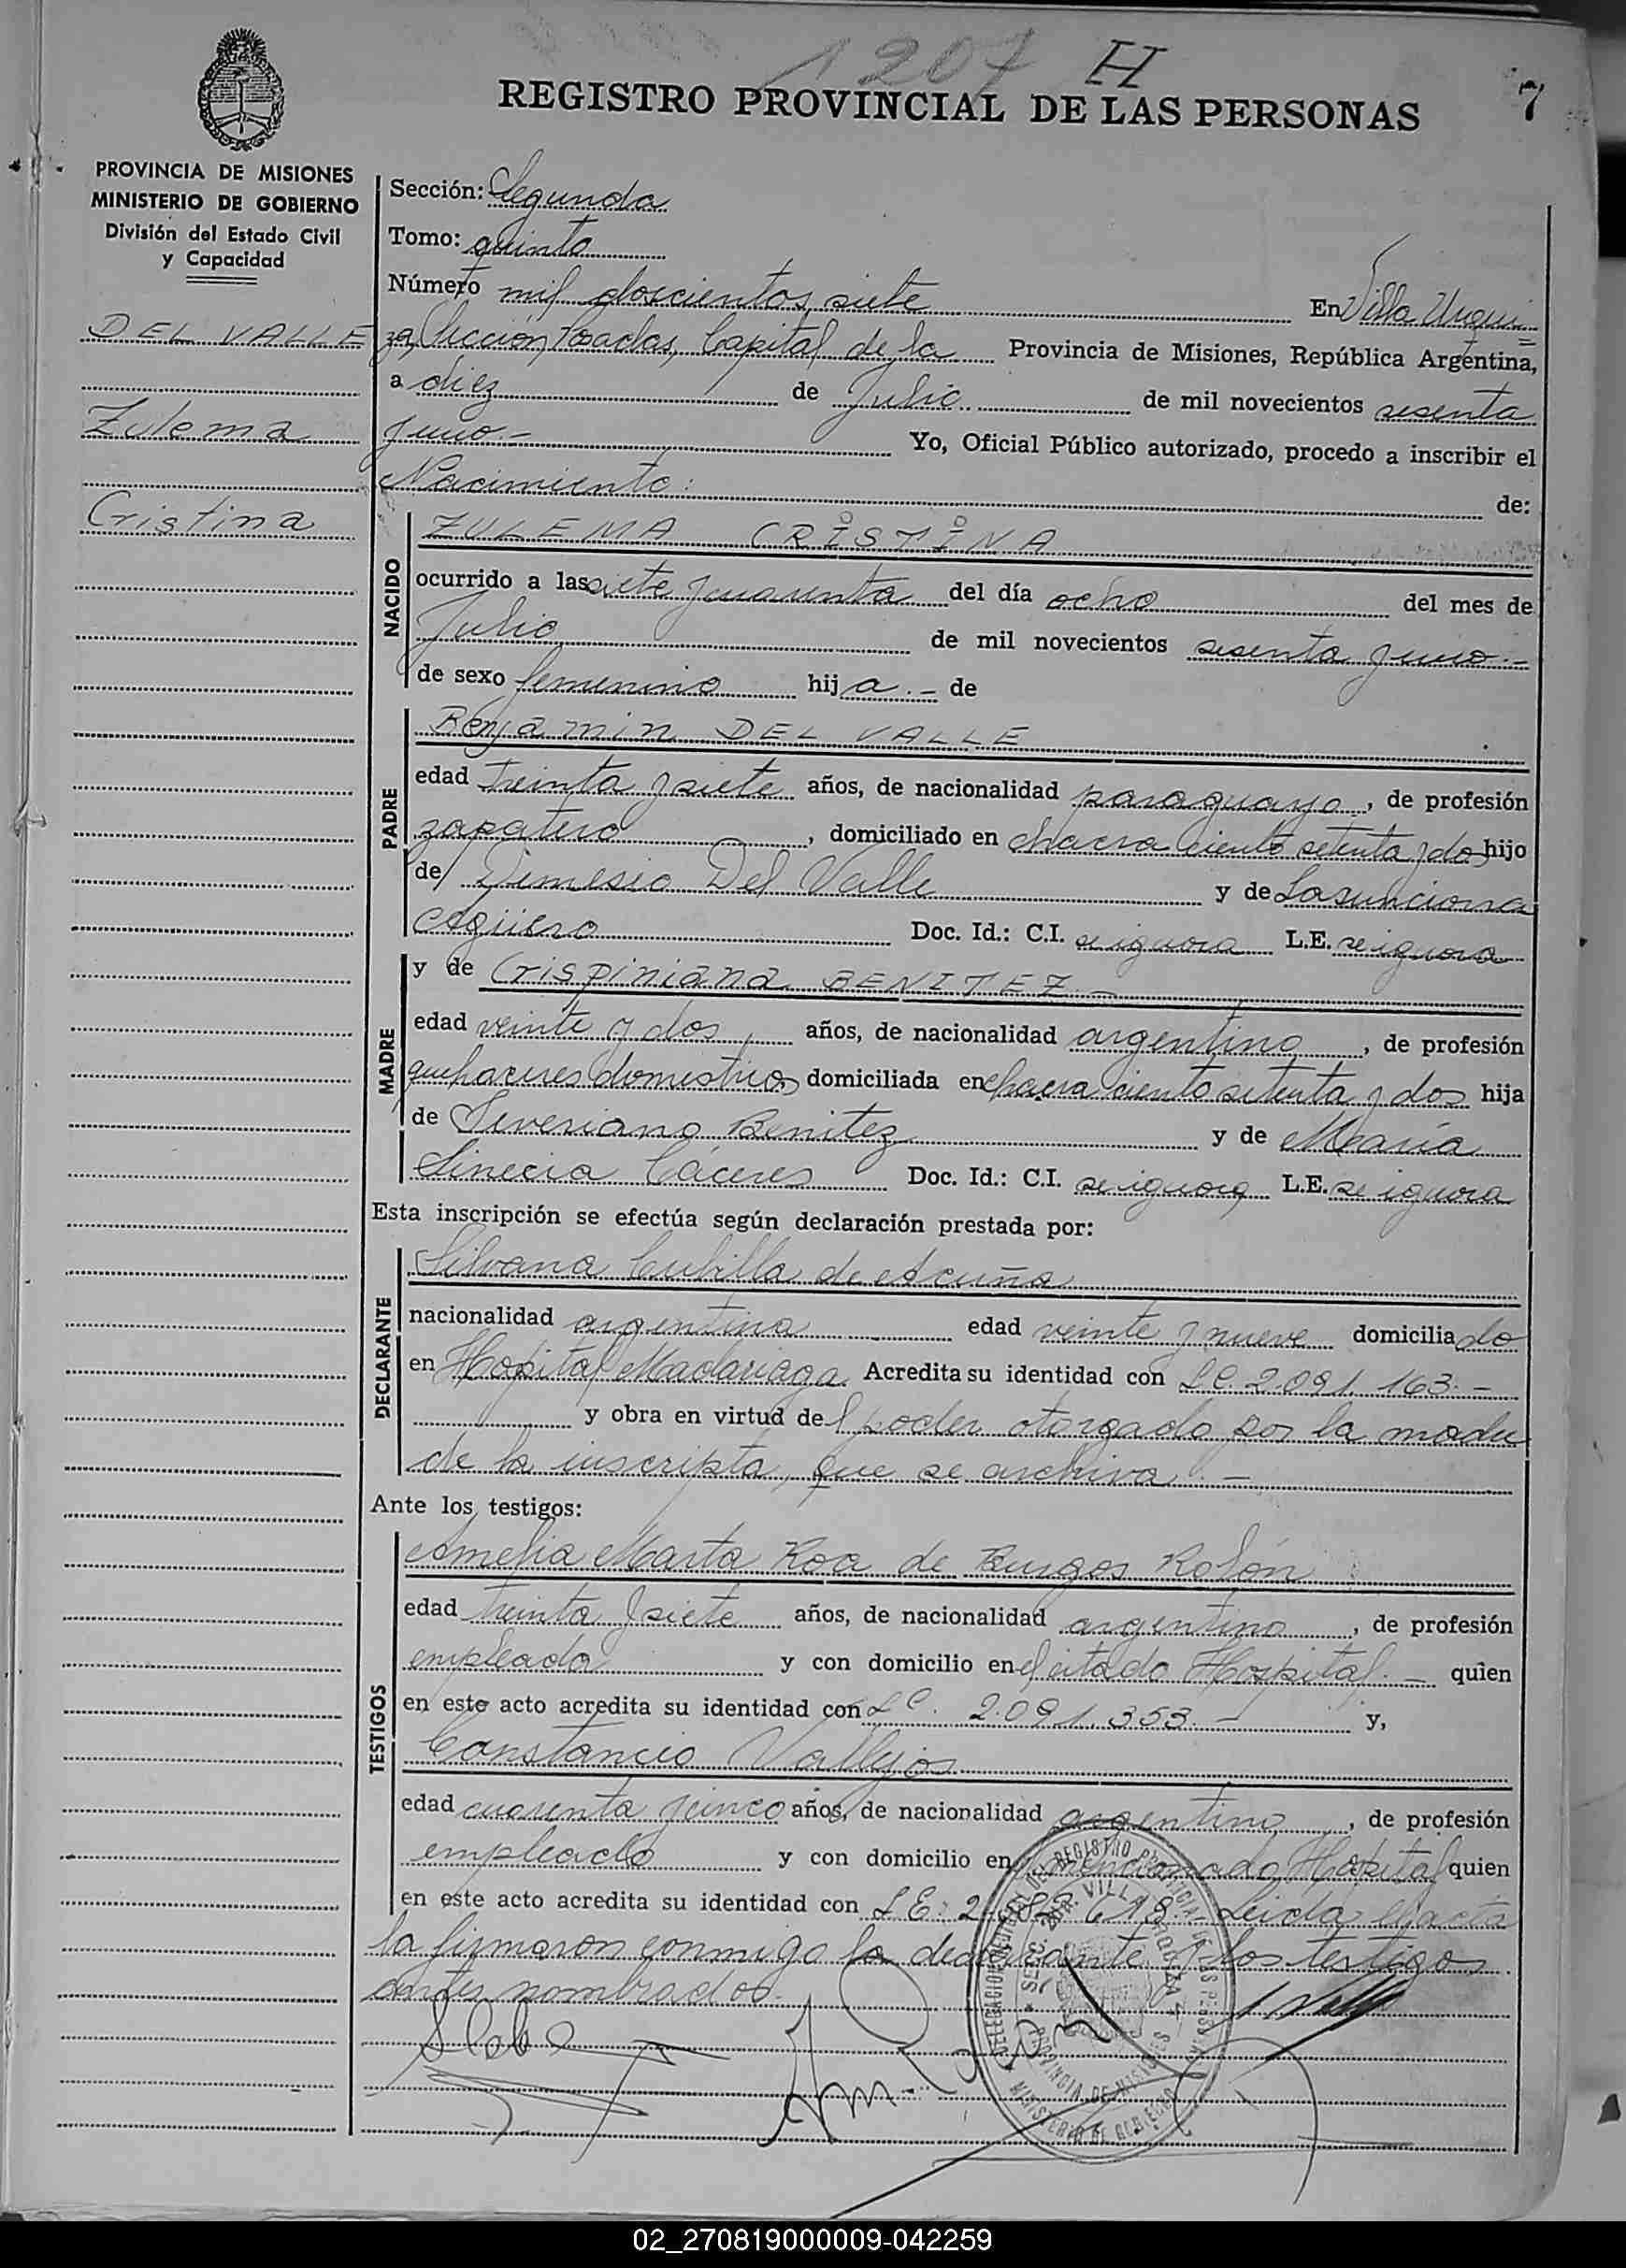 1207 H
REGISTRO PROVINCIAL DE LAS PERSONAS
7
PROVINCIA DE MISIONES
MINISTERIO DE GOBIERNO
División del Estado Civil
y Capacidad
DEL VALLE
Zulema
Cristina
Sección: Segunda
Tomo: quinto
Número mil doscientos siete En Villa Urqui=
za, Sección Posadas, Capital de la Provincia de Misiones, República Argentina,
a diez de Julio de mil novecientos sesenta
y uno.- Yo, Oficial Público autorizado, procedo a inscribir el
Nacimiento: de:
NACIDO
ZULEMA CRISTINA
ocurrido a las siete y cuarenta del día ocho del mes de
Julio de mil novecientos sesenta y uno.-
de sexo femenino hija.- de
PADRE
Benjamin DEL VALLE
edad treinta y siete años, de nacionalidad paraguayo, de profesión
zapatero, domiciliado en chacra ciento setenta y dos hijo
de Del Valle y de
Agüero Doc. Id.: C.I. se ignora L.E. se ignora
MADRE
y de Crispiniana BENITEZ.-
edad veinte y dos años, de nacionalidad argentina, de profesión
quehaceres domesticos domiciliada en chacra ciento setenta y dos hija
de Severiano Benitez y de María
Sinecia Cáceres Doc. Id.: C.I. se ignora L.E. se ignora
Esta inscripción se efectúa según declaración prestada por:
DECLARANTE
Silvana Cubilla de Acuña
nacionalidad argentina edad veinte y nueve domiciliado
en Hospital Madariaga. Acredita su identidad con L.C. 2.091.163.-
y obra en virtud del poder otorgado por la madre
de la inscripta, que se archiva.-
Ante los testigos:
TESTIGOS
Amelia Marta Roa de Burgos Rolón
edad treinta y siete años, de nacionalidad argentina, de profesión
empleada y con domicilio en el citado Hospital.- quien
en este acto acredita su identidad con L.C. 2.091.353.- y,
Constancio Vallejos
edad cuarenta y cinco años, de nacionalidad argentino, de profesión
empleado y con domicilio en mencionado Hospital quien
en este acto acredita su identidad con L.E: Leida el acta
la firmaron conmigo la declarante y los testigos
antes nombrados.
02_270819000009-042259